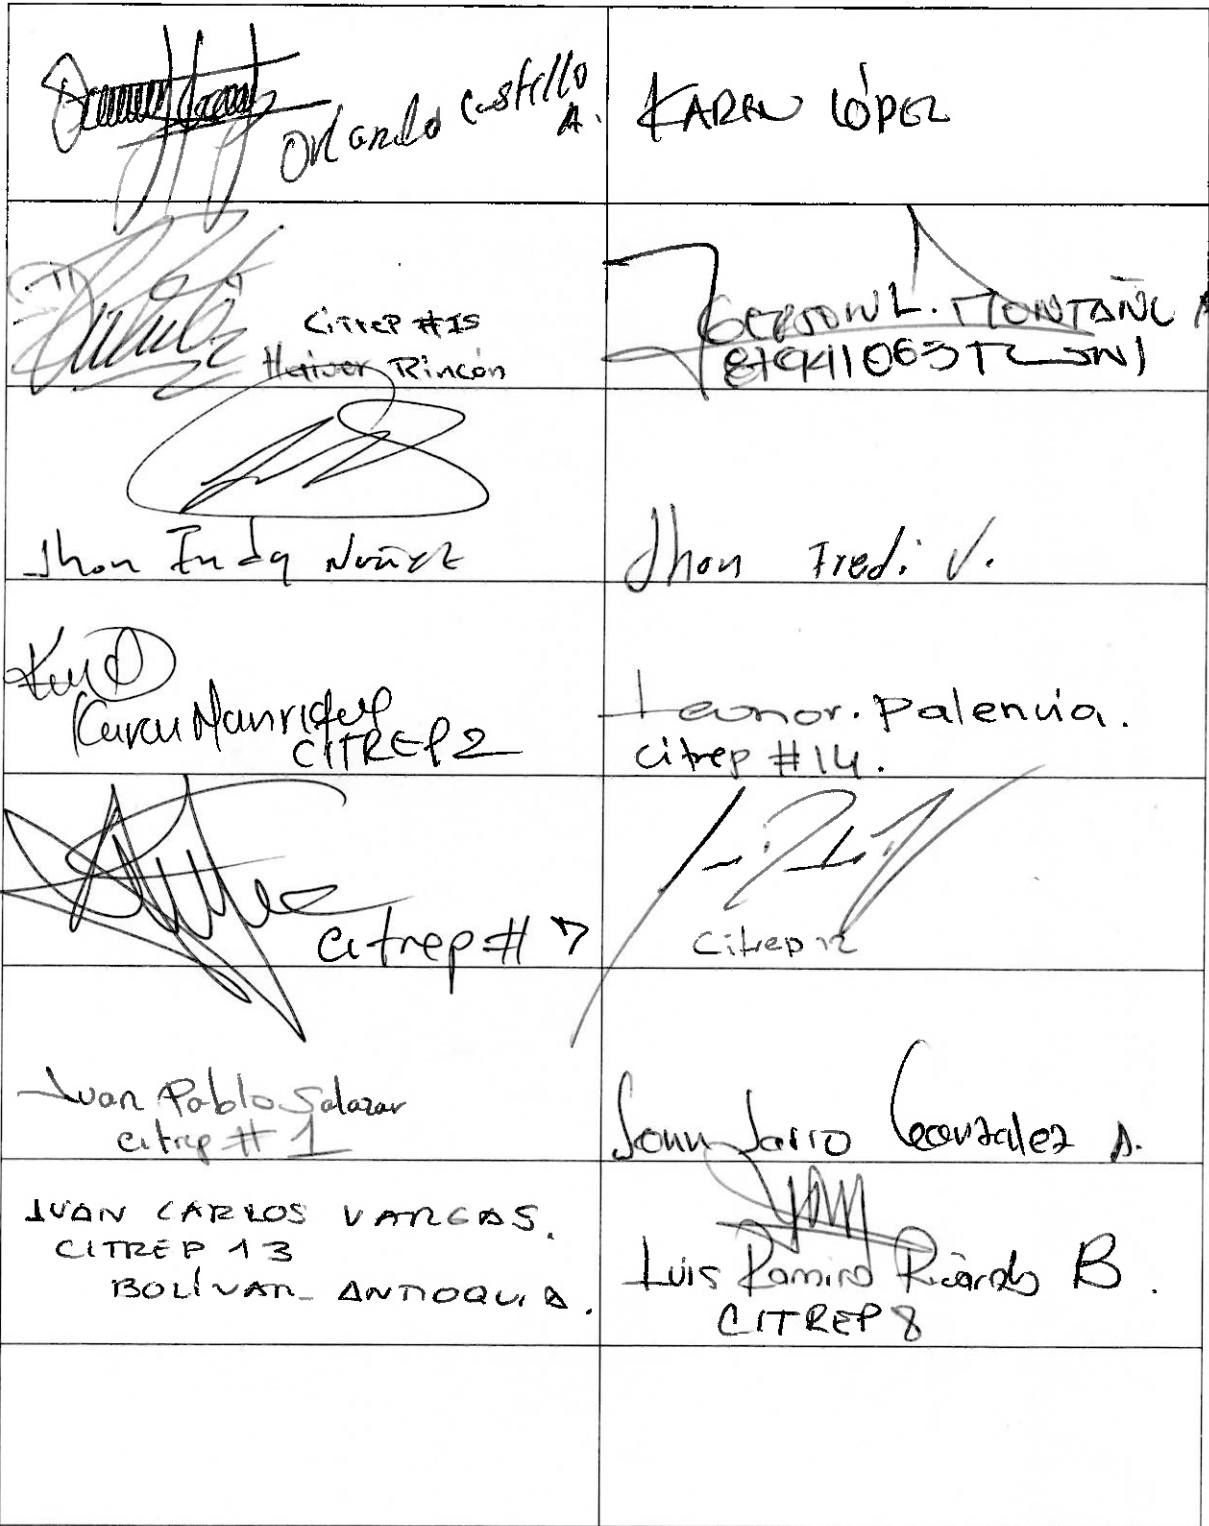 Orlando Castillo A.
KAREN LÓPEZ
CITREP #15
Haiver Rincón
GERSON L. MONTAÑO
Jhon Fredy Nuñez
Jhon Fredi V.
Karen Manrique
CITREP 2
Leonor. Palencia.
citrep #14.
citrep # 7
Citrep 12
Juan Pablo Salazar
citrep # 1
John Jairo González A.
JUAN CARLOS VARGAS.
CITREP 13
BOLÍVAR_ ANTIOQUIA.
Luis Ramiro Ricardo B.
CITREP 8